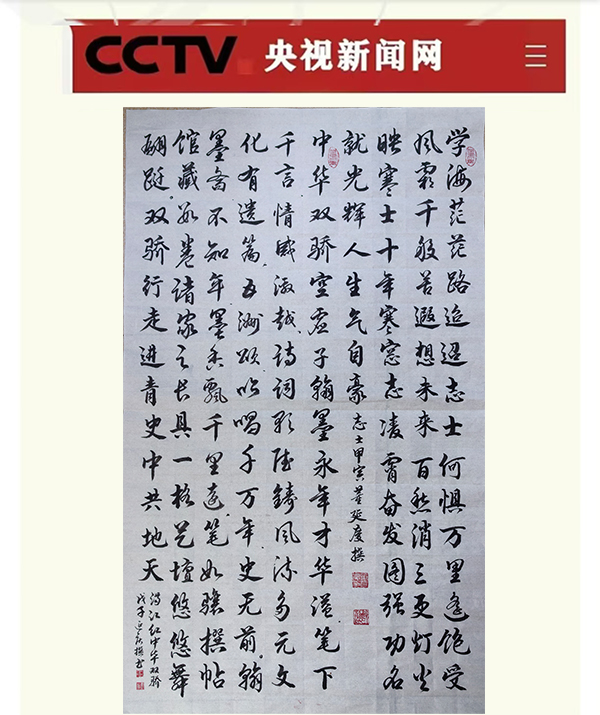 CCTV 央视新闻网
学海茫茫路迢迢志士何惧万里遥饱受
风霜千般苦遐想未来百愁消三更灯火
映寒士十年寒窗志凌霄奋发图强功名
就光辉人生气自豪
志士甲寅董延度撰
中华双骄空虚子翰墨永年才华溢笔下
千言情感激越诗词歌铸风流多元文
化有遗篇五洲颂吟唱千万年史无前翰
墨斋不知年墨香飘千里远笔如撰帖
馆藏卷诸家之长具一格艺坛悠悠舞
翩跹双骄行走进青史中共地天
满江红中华双骄
戊子延度撰书